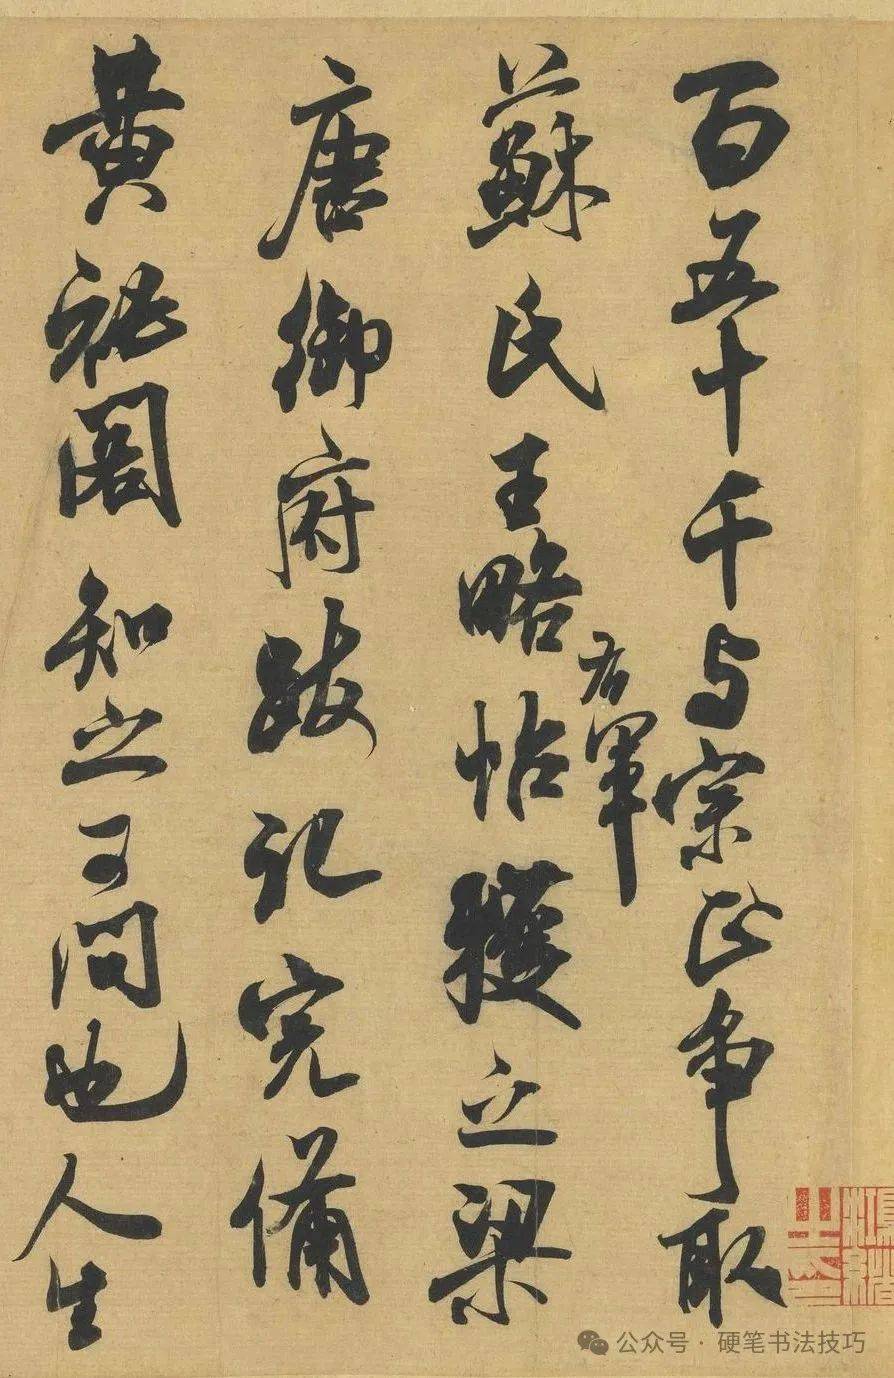 百五十千与宗正争取
蘇氏王略帖右軍獲之梁
唐御府跋记完備
黄秘阁知之可问也人生
公众号 · 硬笔书法技巧